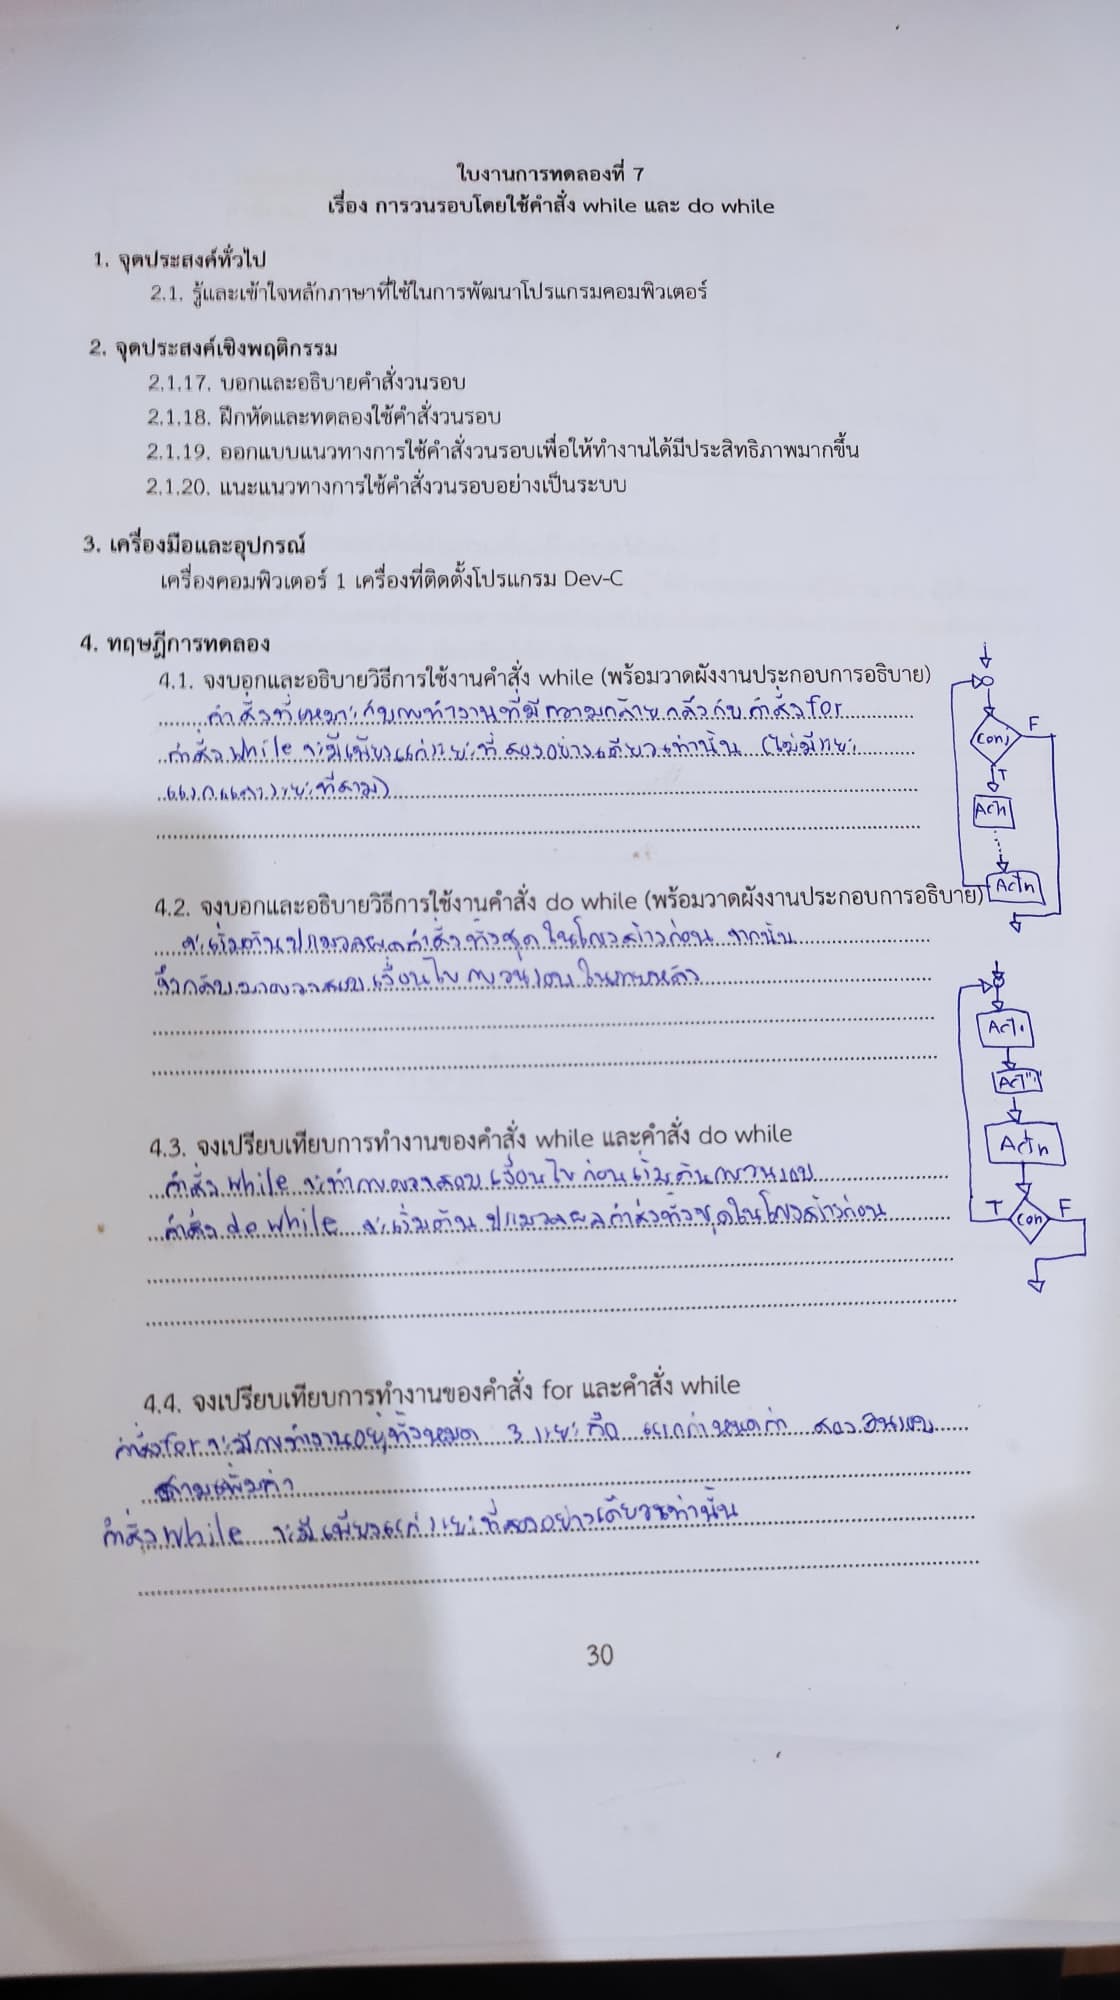 ใบงานการทดลองที่ 7
เรื่อง การวนรอบโดยใช้คำสั่ง while และ do while
1. จุดประสงค์ทั่วไป
2.1. รู้และเข้าใจหลักภาษาที่ใช้ในการพัฒนาโปรแกรมคอมพิวเตอร์
2. จุดประสงค์เชิงพฤติกรรม
2.1.17. บอกและอธิบายคำสั่งวนรอบ
2.1.18. ฝึกหัดและทดลองใช้คำสั่งวนรอบ
2.1.19. ออกแบบแนวทางการใช้คำสั่งวนรอบเพื่อให้ทำงานได้มีประสิทธิภาพมากขึ้น
2.1.20. แนะแนวทางการใช้คำสั่งวนรอบอย่างเป็นระบบ
3. เครื่องมือและอุปกรณ์
เครื่องคอมพิวเตอร์ 1 เครื่องที่ติดตั้งโปรแกรม Dev-C
4. ทฤษฎีการทดลอง
4.1. จงบอกและอธิบายวิธีการใช้งานคำสั่ง while (พร้อมวาดผังงานประกอบการอธิบาย)
คำสั่งที่เหมาะกับการทำงานที่มีความคล้ายคลึงกับคำสั่ง for
คำสั่ง while จะมีเพียงแค่ระยะที่สองอย่างเดียวเท่านั้น (ไม่มีระยะ
แรกและระยะที่สาม)
F
T
4.2. จงบอกและอธิบายวิธีการใช้งานคำสั่ง do while (พร้อมวาดผังงานประกอบการอธิบาย)
จะเริ่มต้นประมวลผลคำสั่งทั้งชุดในโครงสร้างก่อน จากนั้น
จึงกลับมาตรวจสอบเงื่อนไขการวนรอบในภายหลัง
Actn
T
con
F
4.3. จงเปรียบเทียบการทำงานของคำสั่ง while และคำสั่ง do while
คำสั่ง while จะทำการตรวจสอบเงื่อนไขก่อนเริ่มต้นการวนรอบ
คำสั่ง do while จะเริ่มต้นประมวลผลคำสั่งทั้งชุดในโครงสร้างก่อน
4.4. จงเปรียบเทียบการทำงานของคำสั่ง for และคำสั่ง while
คำสั่ง for จะมีการทำงานอยู่ทั้งหมด 3 ระยะ คือ แรกกำหนดค่า สอง วนรอบ
สามเพิ่มค่า
คำสั่ง while จะมีเพียงแค่ระยะที่สองอย่างเดียวเท่านั้น
30